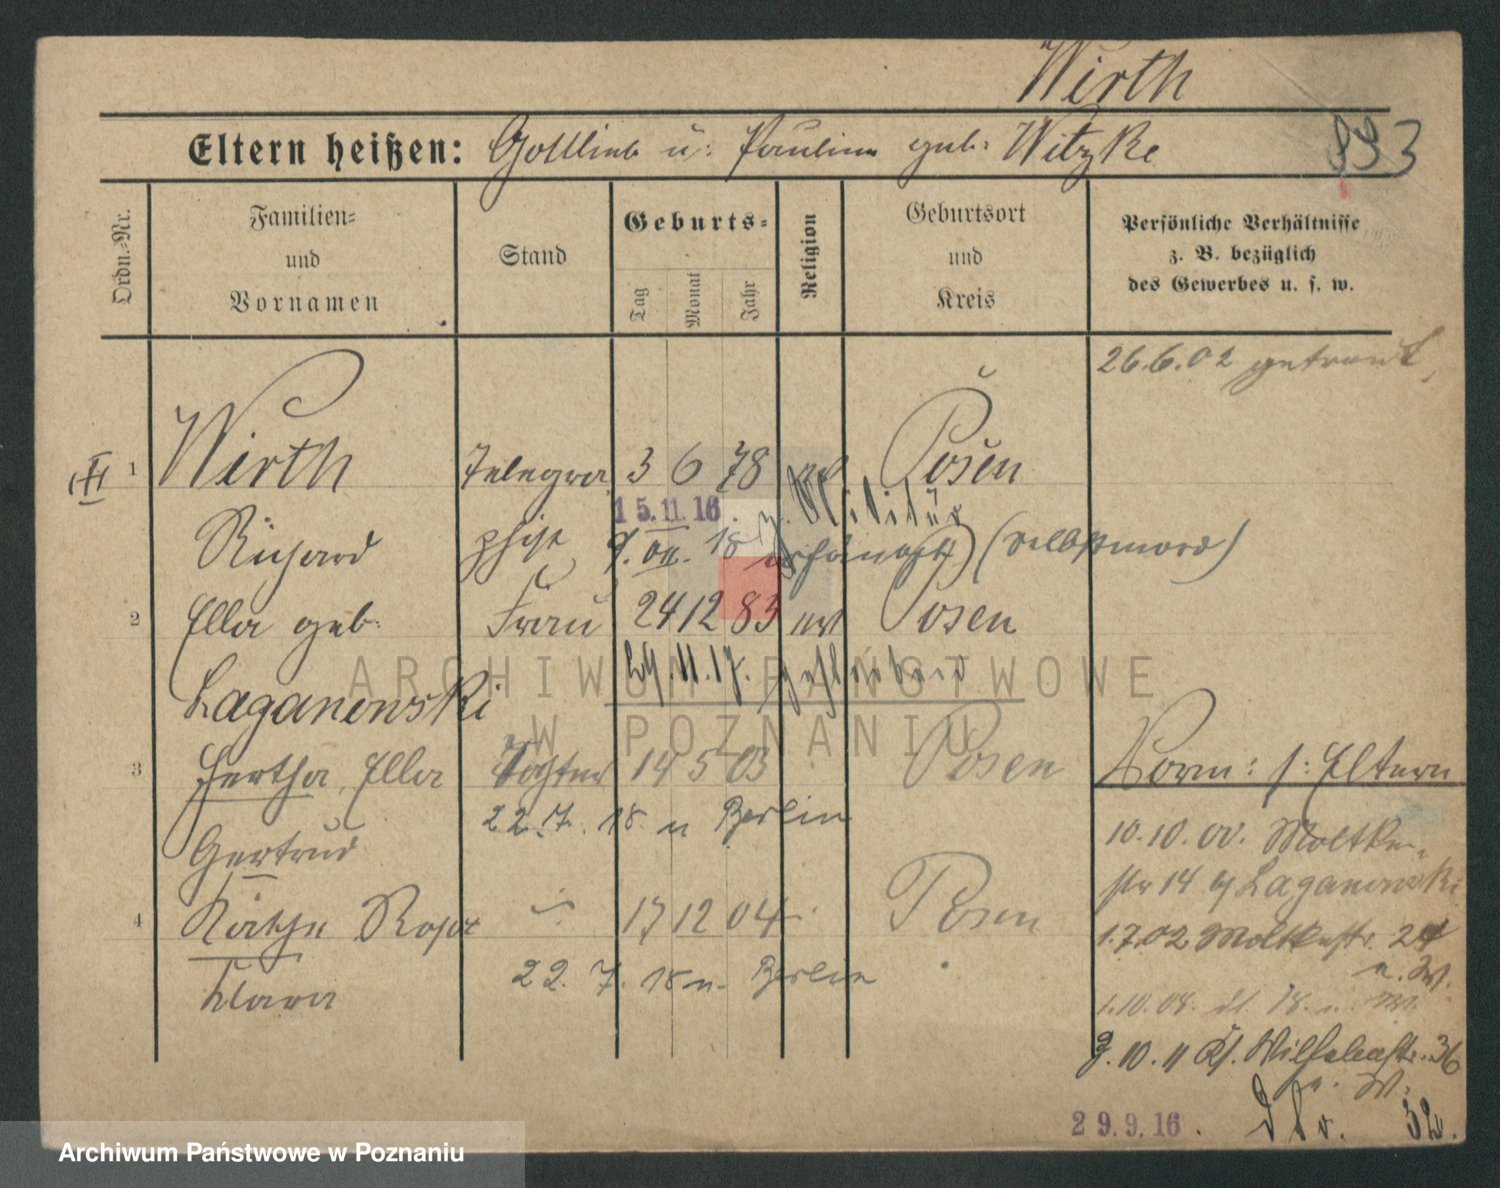 Wirth
Eltern heißen: Gottlieb u. Pauline geb. Witzke
993
Ordn.-Nr.
Familien- und Vornamen
Stand
Geburts-
Tag
Monat
Jahr
Religion
Geburtsort und Kreis
Persönliche Verhältnisse z. B. bezüglich des Gewerbes u. s. w.
26.6.02 getraut
III 1 Wirth Telegra 3 6 78 Posen
15.11.16. z. Militär
Richard phist 18 (Selbstmord)
2 Ella geb. Frau 24 12 83 Posen
29.11.17. gestorben
Laganowski
3 Hertha, Ella Tochter 14 5 03 Posen
Vorm: s: Eltern
22.7.18 n Berlin
Gertrud
10.10.00. Moltke-
str 14 b/ Laganowski
4 Käthe Rosa " 17 12 04 Posen
1.7.02 Moltkestr. 24
n. W.
22.7.18 n. Berlin
Klara
1.10.08. 18. n. W.
9.10.11 Kl. Wilhelmstr. 36
n. W.
29.9.16. 32.
ARCHIWUM PAŃSTWOWE
W POZNANIU
Archiwum Państwowe w Poznaniu